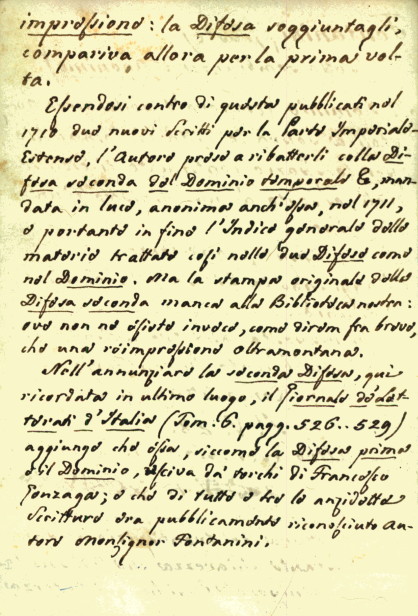 impressione: la Difesa soggiuntagli,
compariva allora per la prima vol-
ta.
Essendosi contro di questa pubblicati nel
1710 due nuovi scritti per la Parte Imperiale-
Estense, l'Autore prese a ribatterli colla Di-
fesa seconda del Dominio temporale &, man-
data in luce, anonima anch'essa, nel 1711,
e portante in fine l'Indice generale delle
materie trattate così nelle due Difese come
nel Dominio. Ma la stampa originale della
Difesa seconda manca alla Biblioteca nostra:
ove non ne esiste invece, come direm fra breve,
che una reimpressione oltramontana.
Nell'annunziare la seconda Difesa, qui
ricordata in ultimo luogo, il Giornale de' Let-
terati d'Italia (Tom. 6. pagg. 526..529)
aggiunge che essa, siccome la Difesa prima
e il Dominio, usciva da' torchi di Francesco
Gonzaga; e che di tutte e tre le anzidette
Scritture era pubblicamente riconosciuto Au-
tore Monsignor Fontanini.